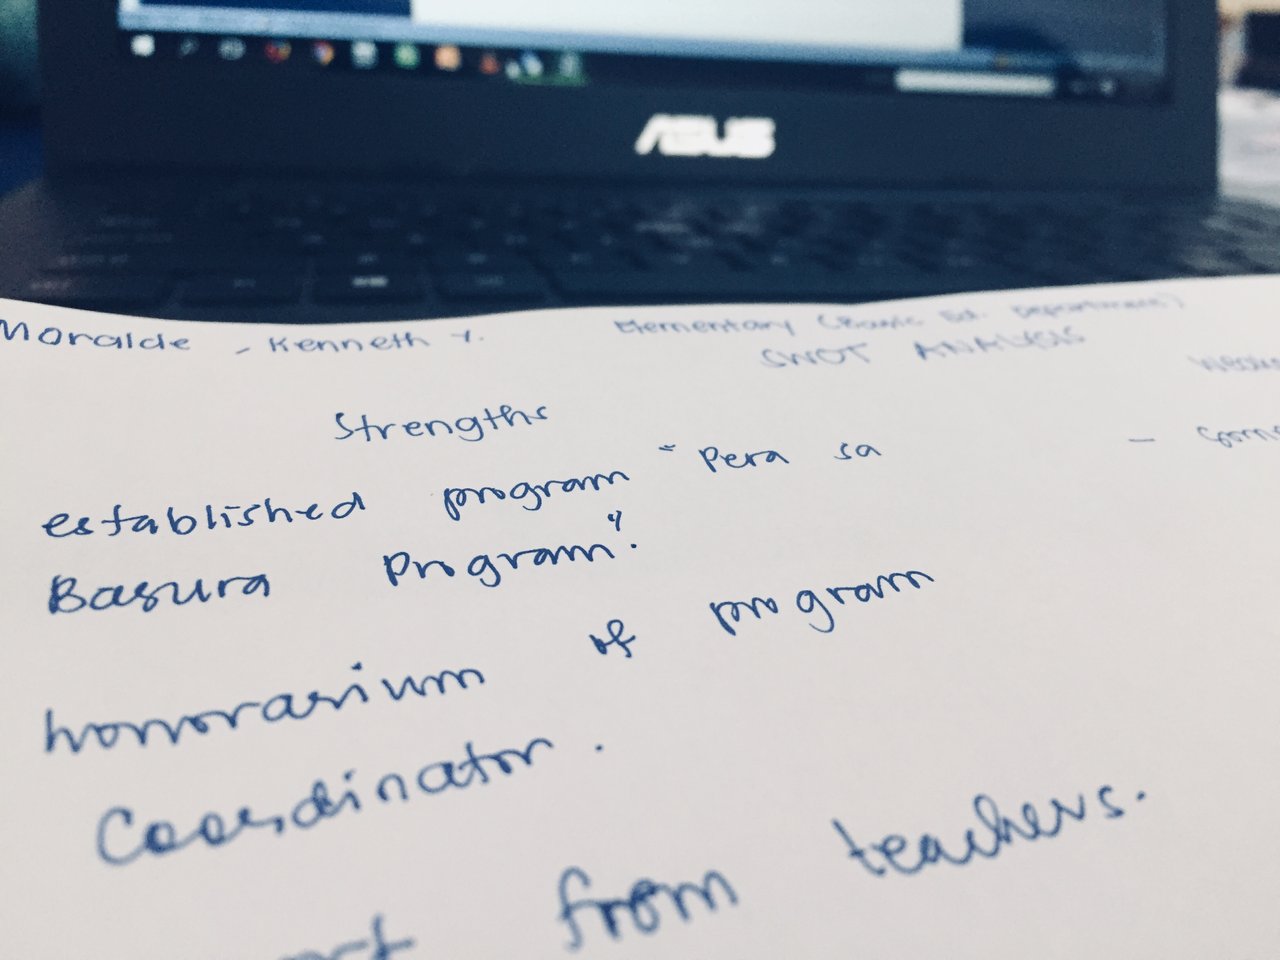 ASUS
Moralde - Kenneth Y.
Elementary (Basic Ed. Department)
SWOT ANALYSIS
Strengths
established program "Pera sa
Basura Program".
honorarium of program
Coordinator.
from teachers.